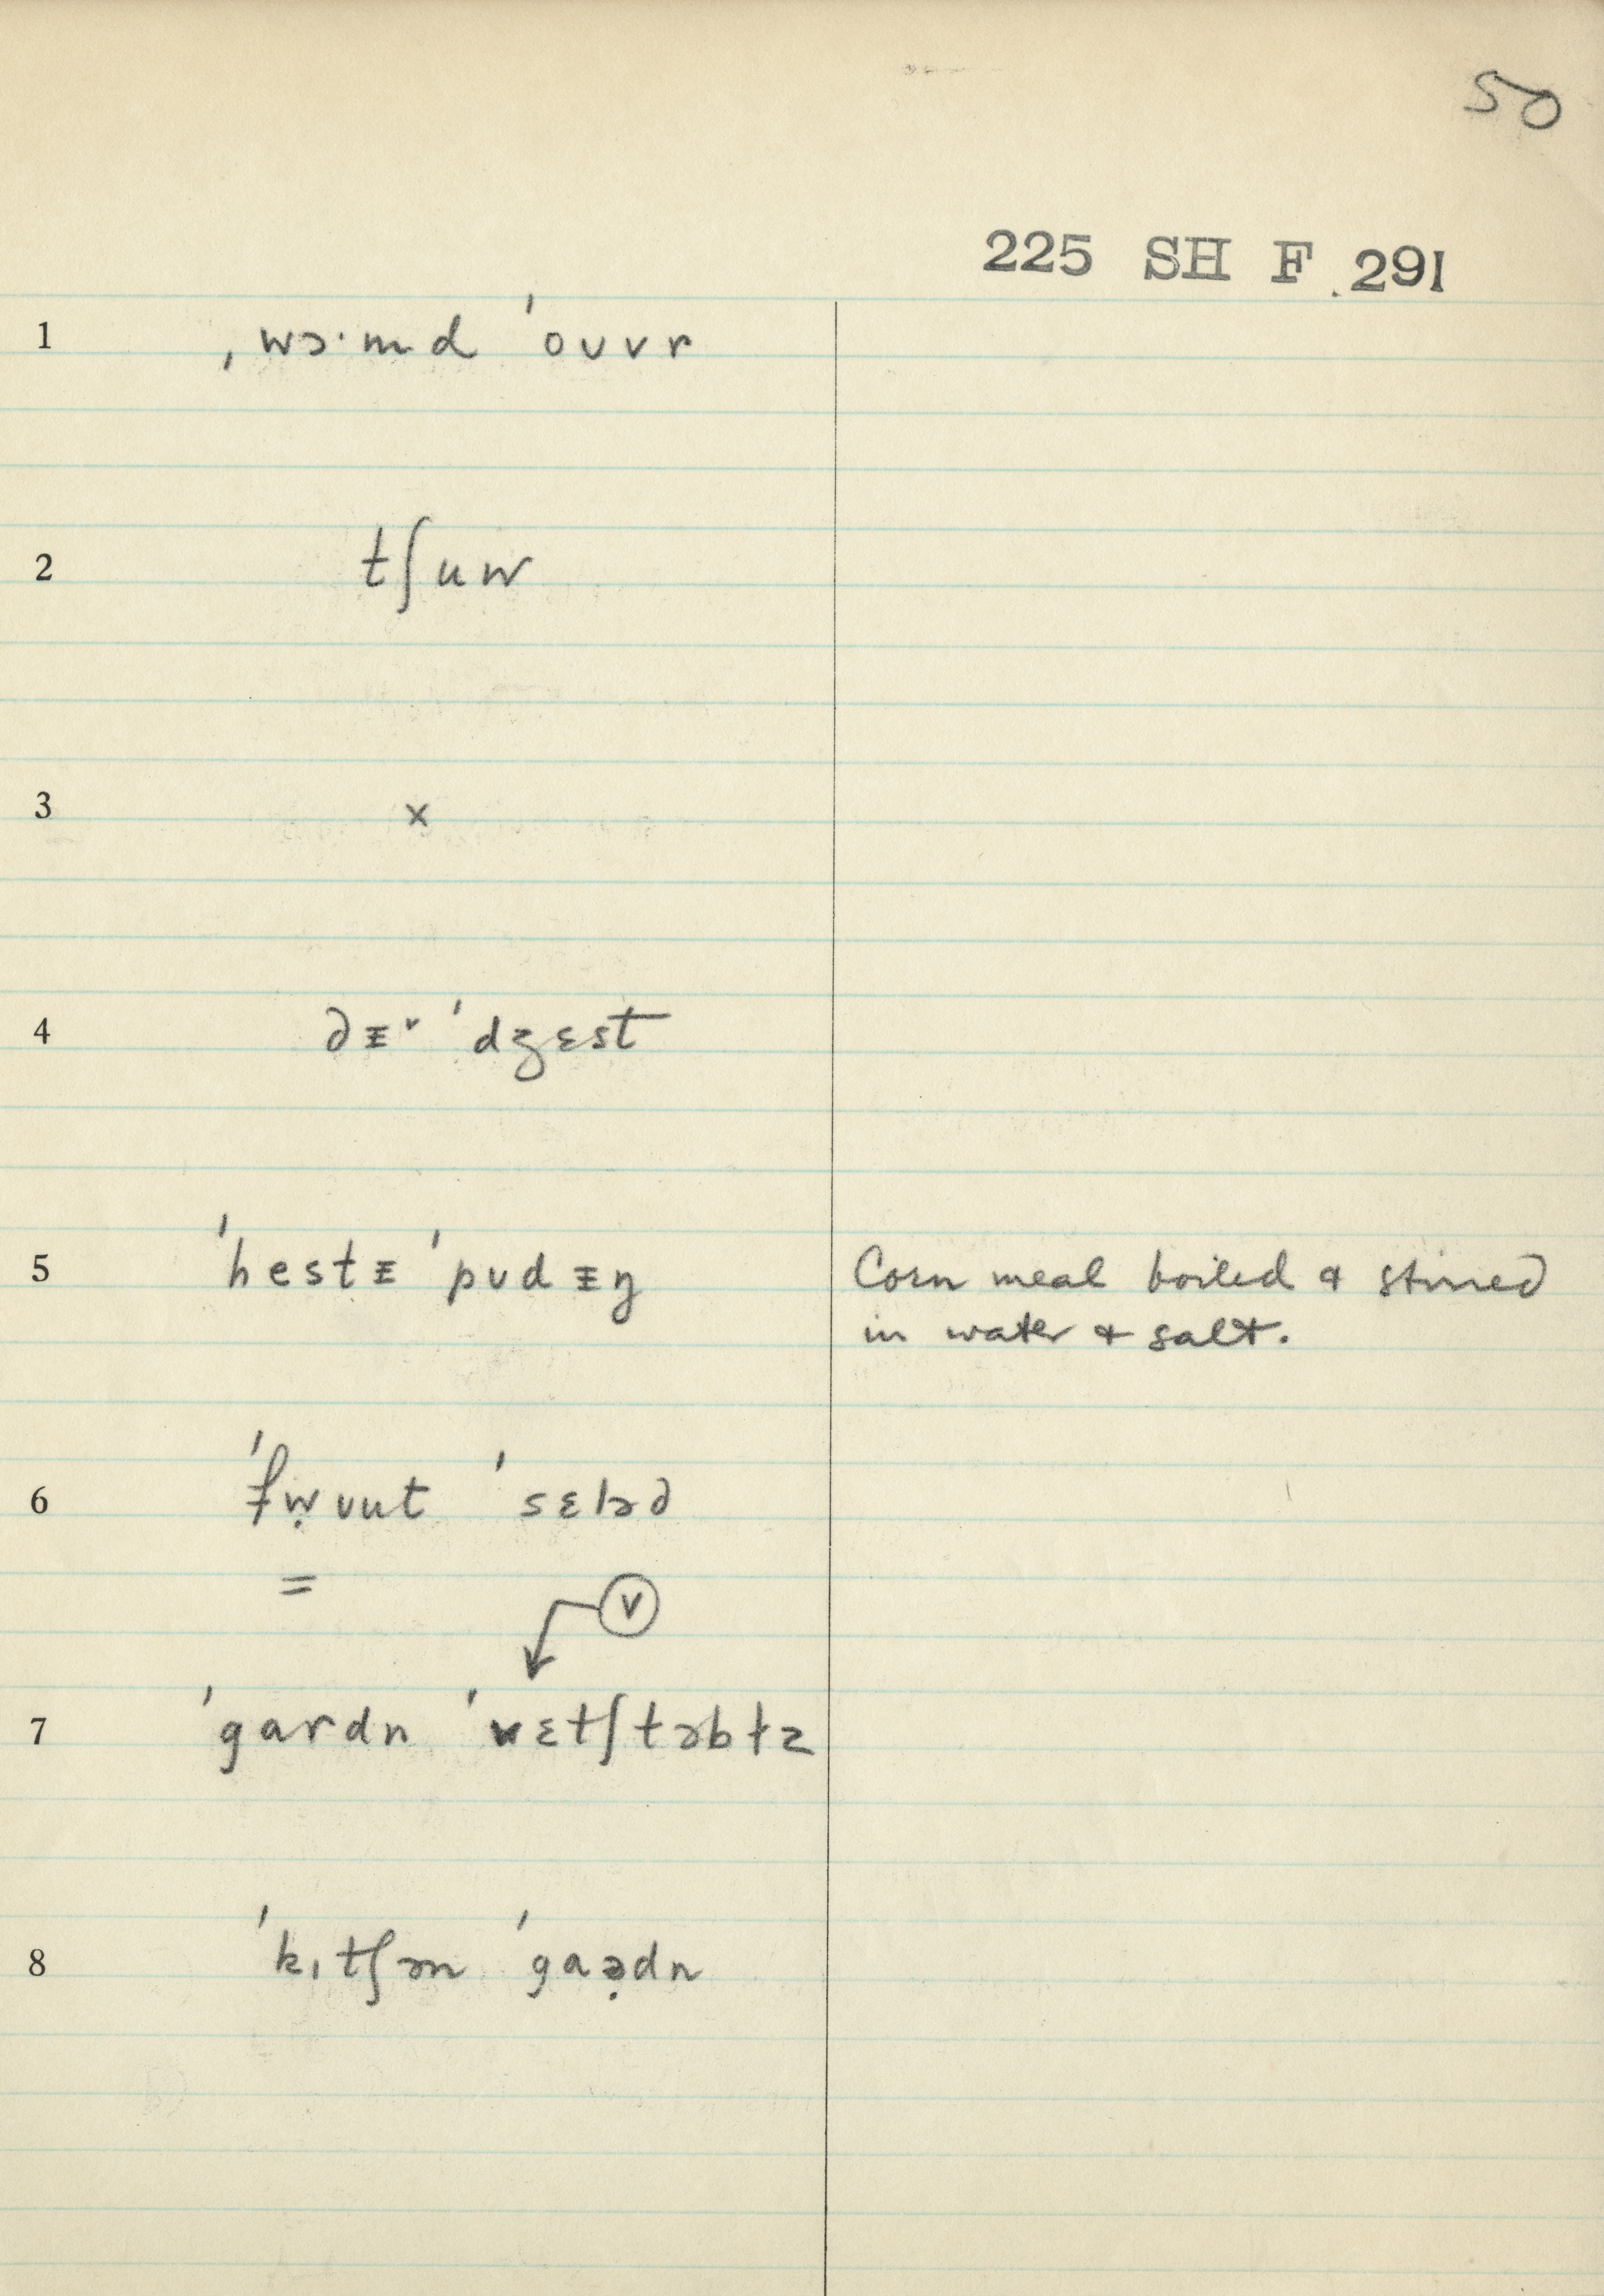 50
225 SH F 291
1 ˌwɔ·md ˈouvr
2 tʃuw
3 x
4 dᵻ˅ ˈdʒɛst
5 ˈhestᵻ ˈpudᵻŋ Corn meal boiled & stirred
in water & salt.
6 ˈfẉuut ˈsɛləd
=
v
7 ˈgardn ˈvɛtʃtəbɫz
8 ˈkɪtʃən ˈgaə̣dn